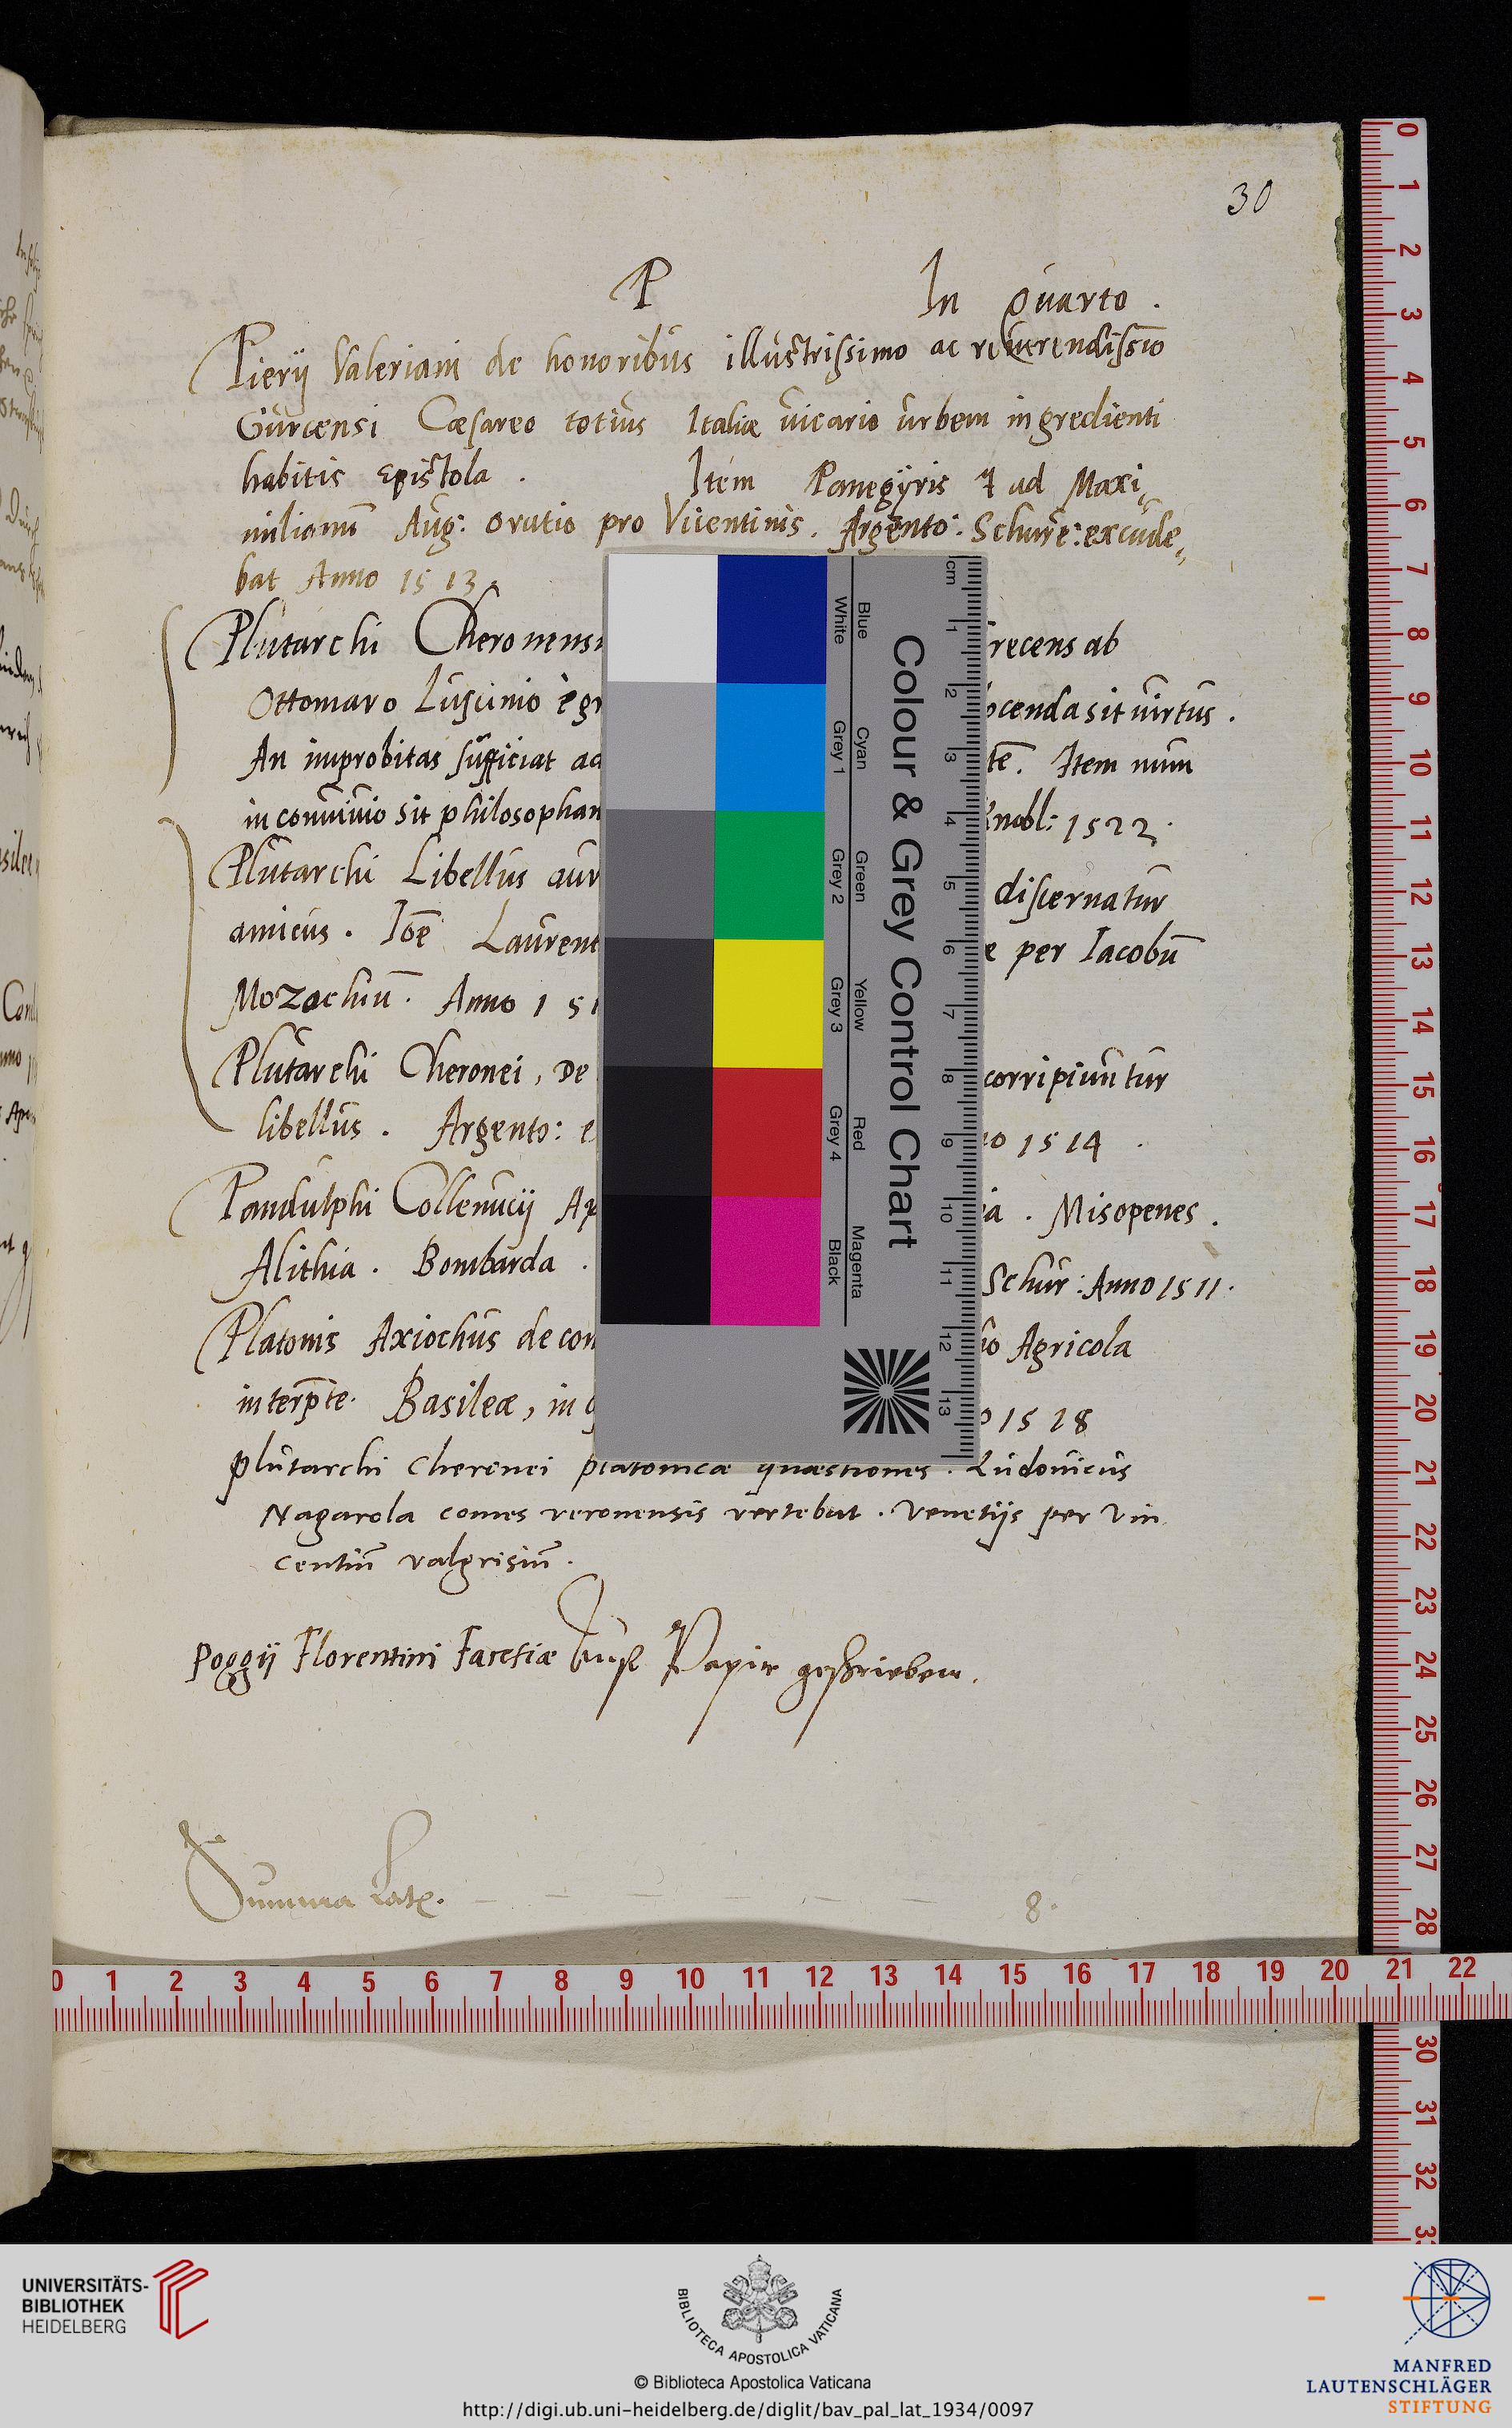 30
P In Quarto .
Pierij Valeriani de honoribus illustrissimo ac reuerendissio
Gurcensi Cæsareo totius Italiæ uicario urbem ingredienti
habitis Epistola . Item Panegyris 7 ad Maxi,
milianū Aug: oratio pro Vicentinis . Argento: Schure: excude,
bat Anno 1513.
Plutarchi Cheronensi recens ab
Ottomaro Luscinio è gr ocenda sit uirtus .
An improbitas sufficiat ad tē. Item num
in conuiuio sit philosophan Knobl: 1522.
Plutarchi Libellus aur discernatur
amicus . Ioē Laurent e per Iacobū
Mozachiū . Anno 151
Plutarchi Cheronei, De corripiuntur
libellus . Argento: e no 1514 .
Pandulphi Collenucij Ap ia . Misopenes .
Alithia . Bombarda . Schur: Anno 1511.
Platonis Axiochus de con ho Agricola
interp̄te. Basileæ, in g o 1518
Plutarchi Cheronei platonicæ quæstiones . Ludouicus
Nagarola comes veronensis vertebat . Venetijs per Vin
centiū valgrisiū .
Poggij Florentini Facetiæ auf Papir geschrieben.
Summa Late. 8.
Colour & Grey Control Chart
Blue Cyan Green Yellow Red Magenta
White Grey 1 Grey 2 Grey 3 Grey 4 Black
cm 1 2 3 4 5 6 7 8 9 10 11 12 13
0 1 2 3 4 5 6 7 8 9 10 11 12 13 14 15 16 17 18 19 20 21 22 23 24 25 26 27 28 30 31 32
0 1 2 3 4 5 6 7 8 9 10 11 12 13 14 15 16 17 18 19 20 21 22
UNIVERSITÄTS-
BIBLIOTHEK
HEIDELBERG
BIBLIOTECA APOSTOLICA VATICANA
© Biblioteca Apostolica Vaticana
http://digi.ub.uni-heidelberg.de/diglit/bav_pal_lat_1934/0097
MANFRED
LAUTENSCHLÄGER
STIFTUNG